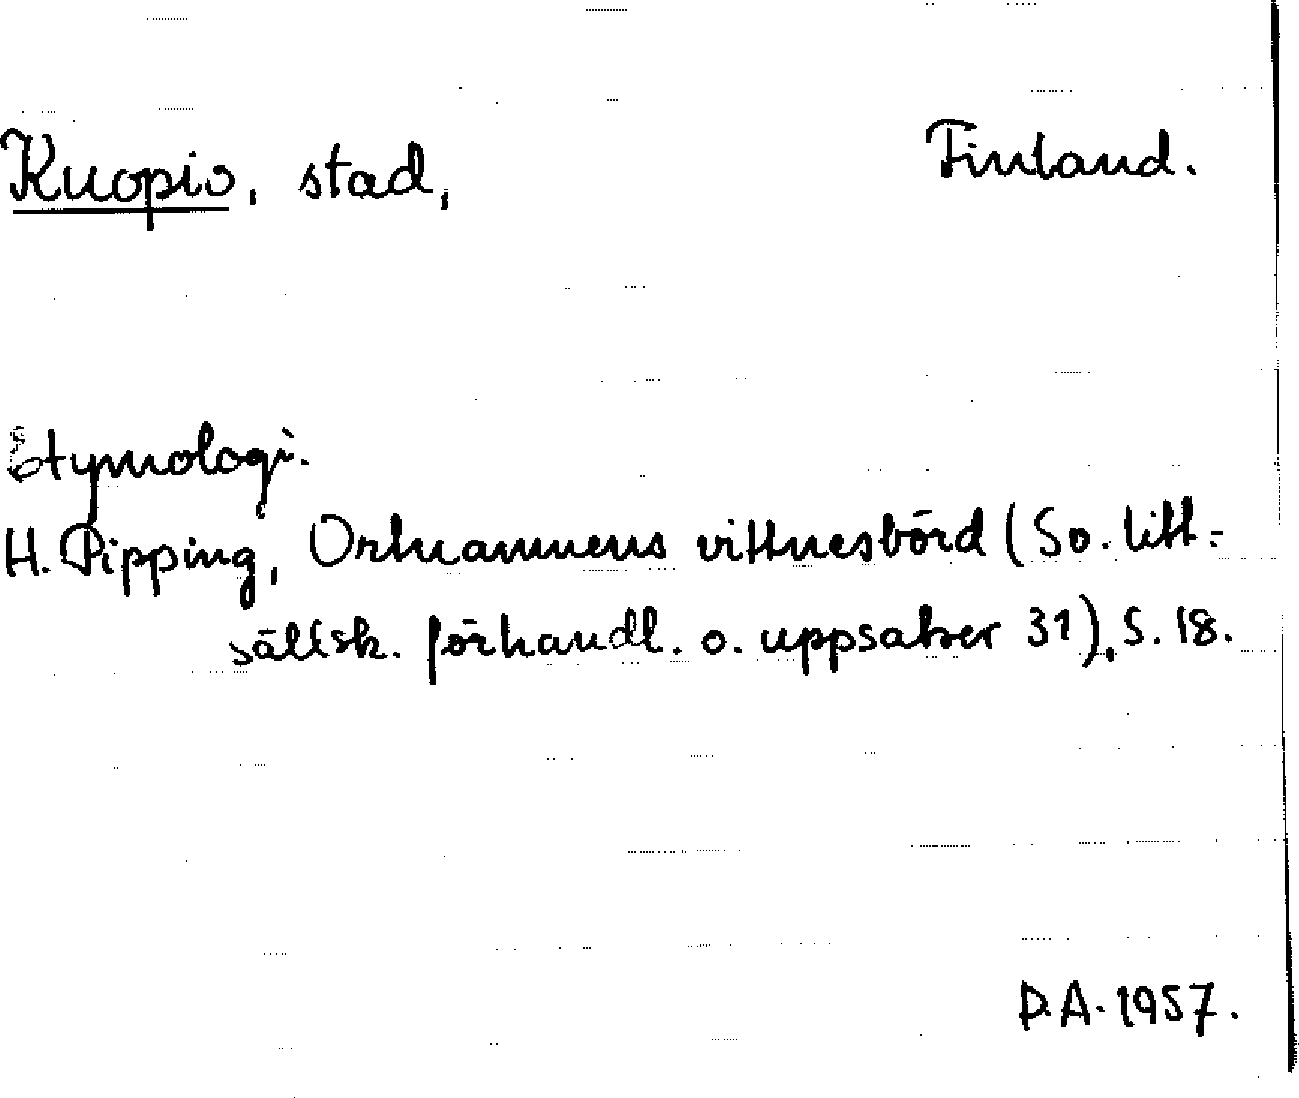 Kuopio, stad, Finland.
Etymologi.
H. Pipping, Ortnamnens vittnesbörd (Sv. litt-
sällsk. förhandl. o. uppsatser 31), S. 18.
D.A. 1957.